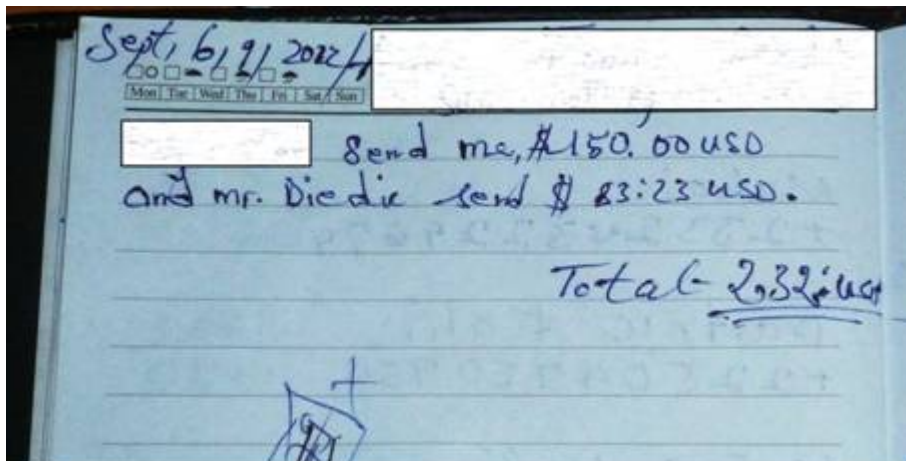 Sept, 6, 9, 2022
Mon Tue Wed Thu Fri Sat Sun
Send me, $150.00 USD
and mr. Diedie send $ 83:23 USD.
Total- 2,32: usd